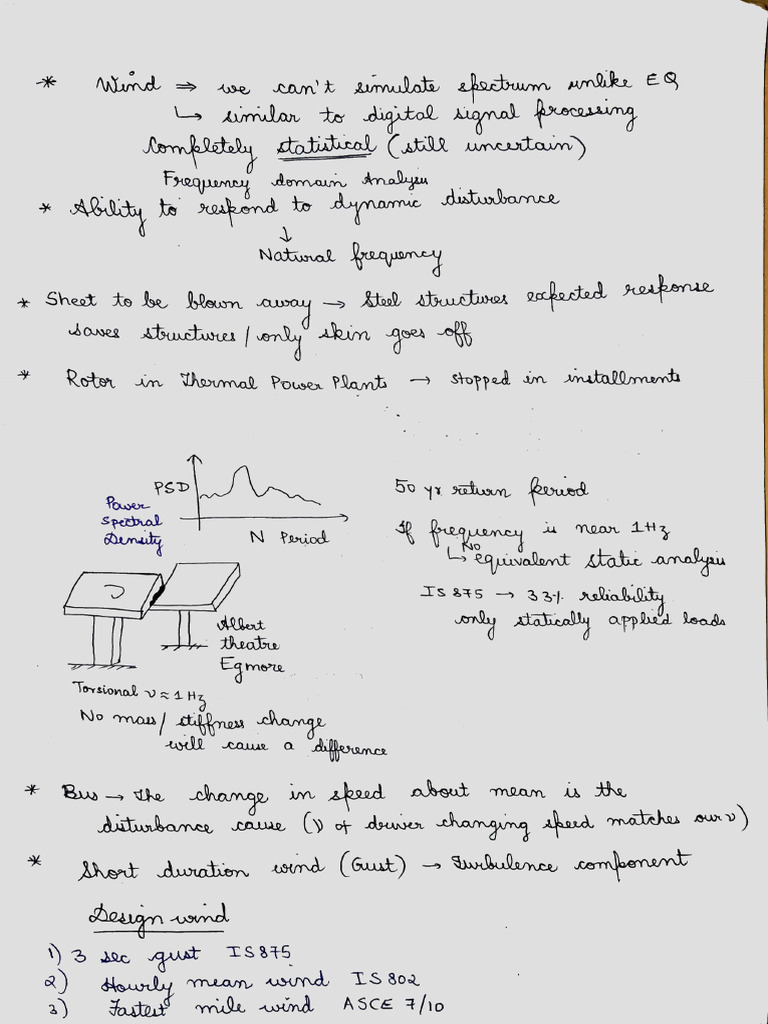 * Wind ⇒ we can't simulate spectrum unlike EQ
↳ similar to digital signal processing
Completely statistical (still uncertain)
Frequency domain Analysis
* Ability to respond to dynamic disturbance
↓
Natural frequency
* Sheet to be blown away → Steel structures expected response
saves structures / only skin goes off
* Rotor in Thermal Power Plants → stopped in installments
PSD
Power
Spectral
Density
N Period
50 yr return period
If frequency is near 1 Hz
↳ No equivalent static analysis
IS 875 → 33% reliability
only statically applied loads
Albert
theatre
Egmore
Torsional ν ≈ 1 Hz
No mass / stiffness change
will cause a difference
* Bus → The change in speed about mean is the
disturbance cause (ν of driver changing speed matches our ν)
* Short duration wind (Gust) → Turbulence component
Design wind
1) 3 sec gust IS 875
2) Hourly mean wind IS 802
3) Fastest mile wind ASCE 7/10